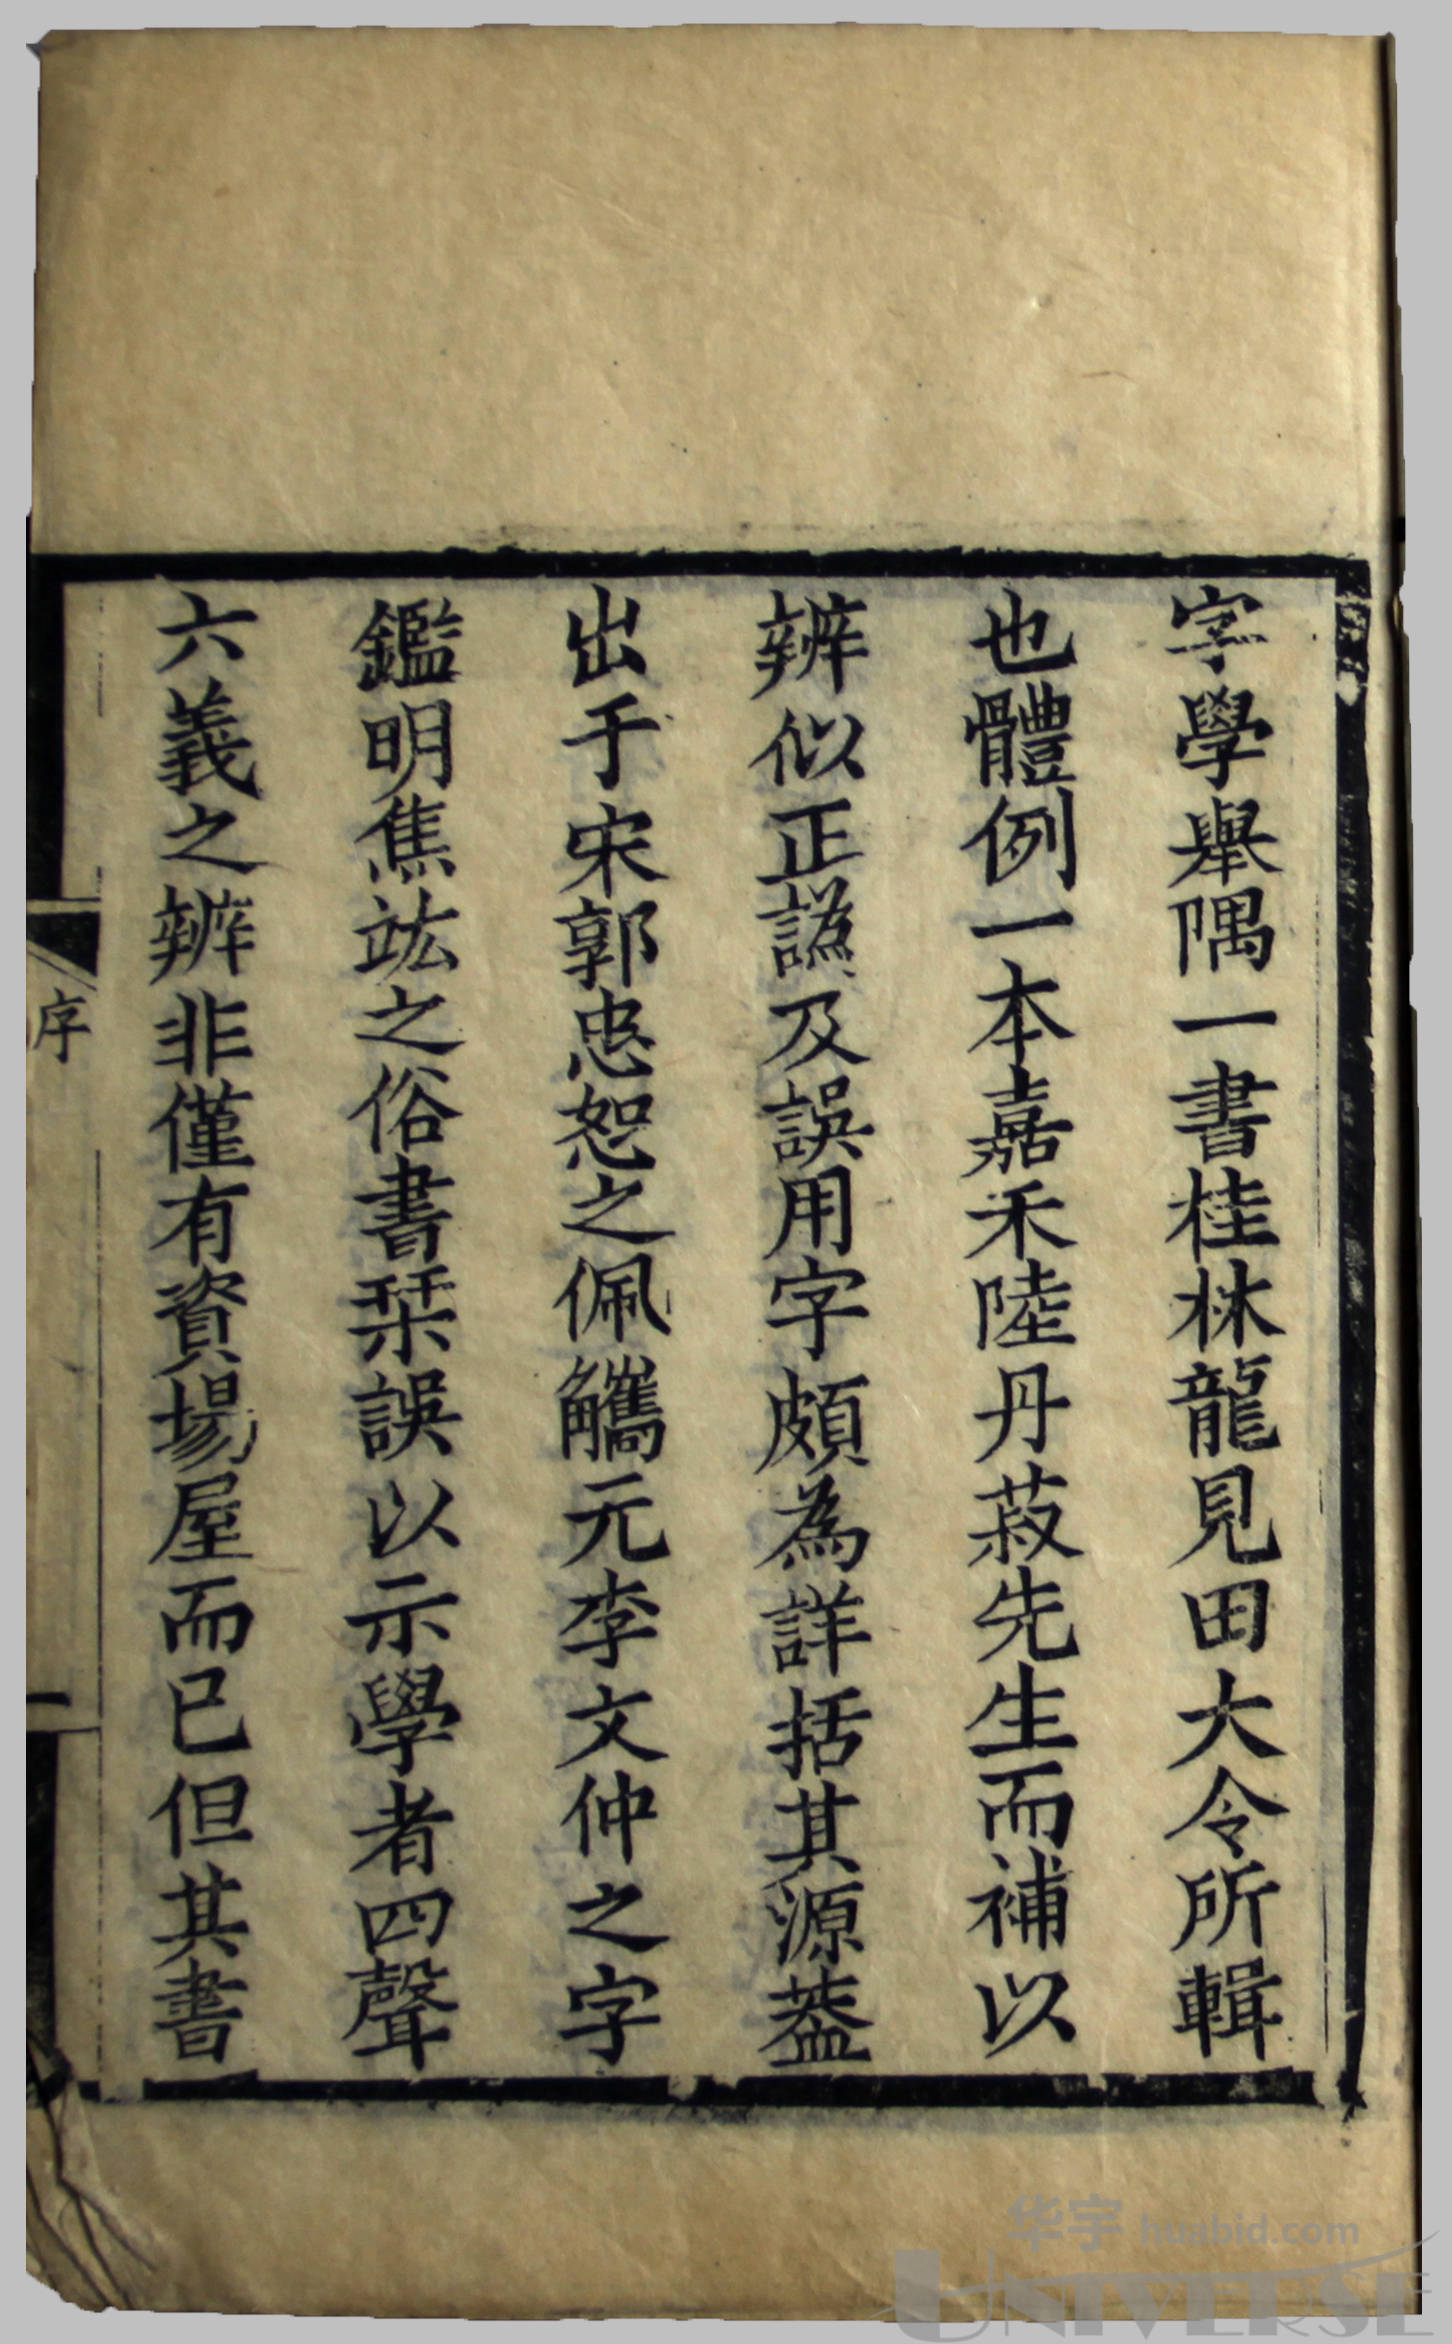 字學舉隅一書桂林龍見田大令所輯
也體例一本嘉禾陸丹菽先生而補以
辨似正譌及誤用字頗為詳括其源葢
出于宋郭忠恕之佩觿元李文仲之字
鑑明焦竑之俗書栞誤以示學者四聲
六義之辨非僅有資場屋而已但其書
序
一
华宇 huabid.com
UNIVERSE